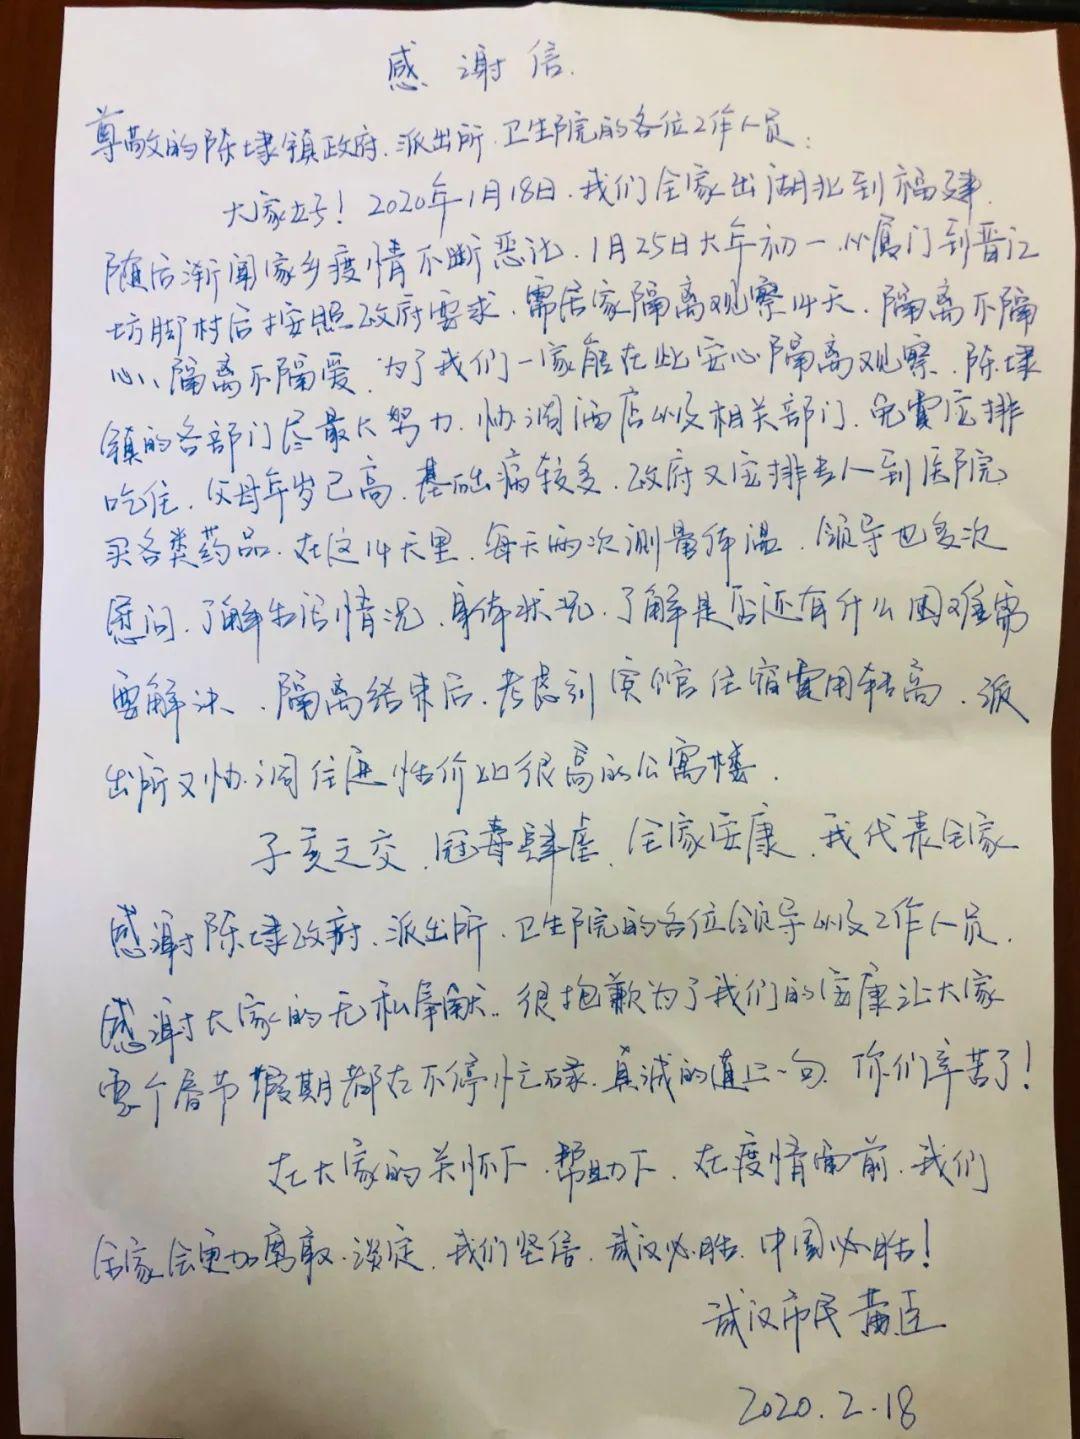 感谢信.
尊敬的陈埭镇政府、派出所、卫生院的各位工作人员：
大家好！2020年1月18日、我们全家出湖北到福建、
随后渐闻家乡疫情不断恶化、1月25日大年初一从厦门到晋江
坊脚村后按照政府要求、需居家隔离观察14天、隔离不隔
心、隔离不隔爱、为了我们一家能在此安心隔离观察、陈埭
镇的各部门尽最大努力、协调酒店以及相关部门、免费安排
吃住、父母年岁已高、基础病较多、政府又安排专人到医院
买各类药品、在这14天里、每天两次测量体温、领导也多次
慰问、了解生活情况、身体状况、了解是否还有什么困难需
要解决、隔离结束后、考虑到宾馆住宿费用较高、派
出所又协调住进性价比很高的公寓楼.
子亥之交、冠毒肆虐、全家安康、我代表全家
感谢陈埭政府、派出所、卫生院的各位领导以及工作人员、
感谢大家的无私奉献、很抱歉为了我们的安康让大家
整个春节假期都在不停忙碌、真诚的道上一句、你们辛苦了！
在大家的关怀下、帮助下、在疫情面前、我们
全家会更加勇敢、淡定、我们坚信、武汉必胜、中国必胜！
武汉市民 黄臣
2020.2.18